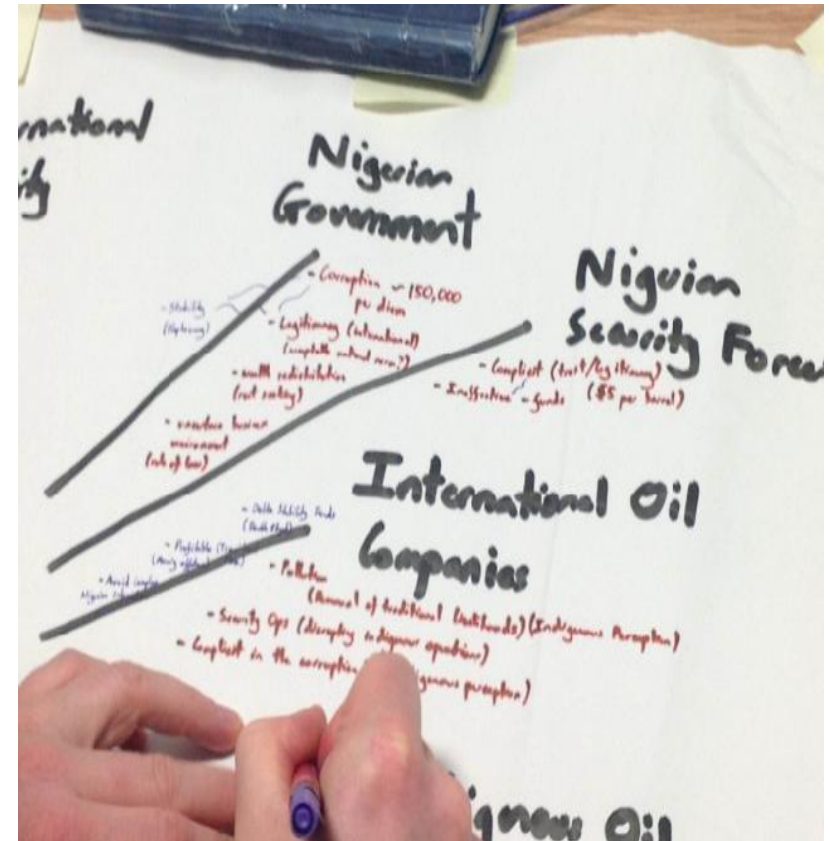 rnational
ity
Nigerian
Government
- Corruption ~ 150,000
per diem
- Stability
- Legitimacy (international)
(acceptable cultural norm?)
- wealth redistribution
(rent seeking)
- business
environment
(rule of law)
Nigerian
Security Forces
- Complicit (trust/legitimacy)
- Ineffective - funds ($5 per barrel)
International Oil
Companies
- Delta Stability Funds
- Profitable
- Avoid
Nigerian
- Pollution
(Removal of traditional livelihoods) (Indigenous Perception)
- Security Ops (disrupting indigenous operations)
- Complicit in the corruption genous perception)
genous Oil